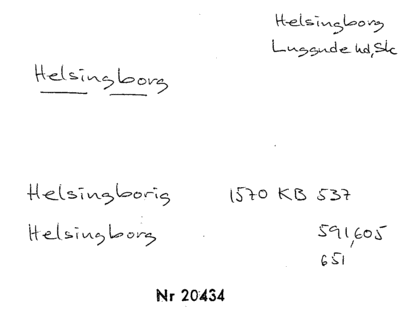 Helsingborg
Luggude hd, Sk
Helsingborg
Helsingborig 1570 KB 537
Helsingborg 591,605
651
Nr 20434